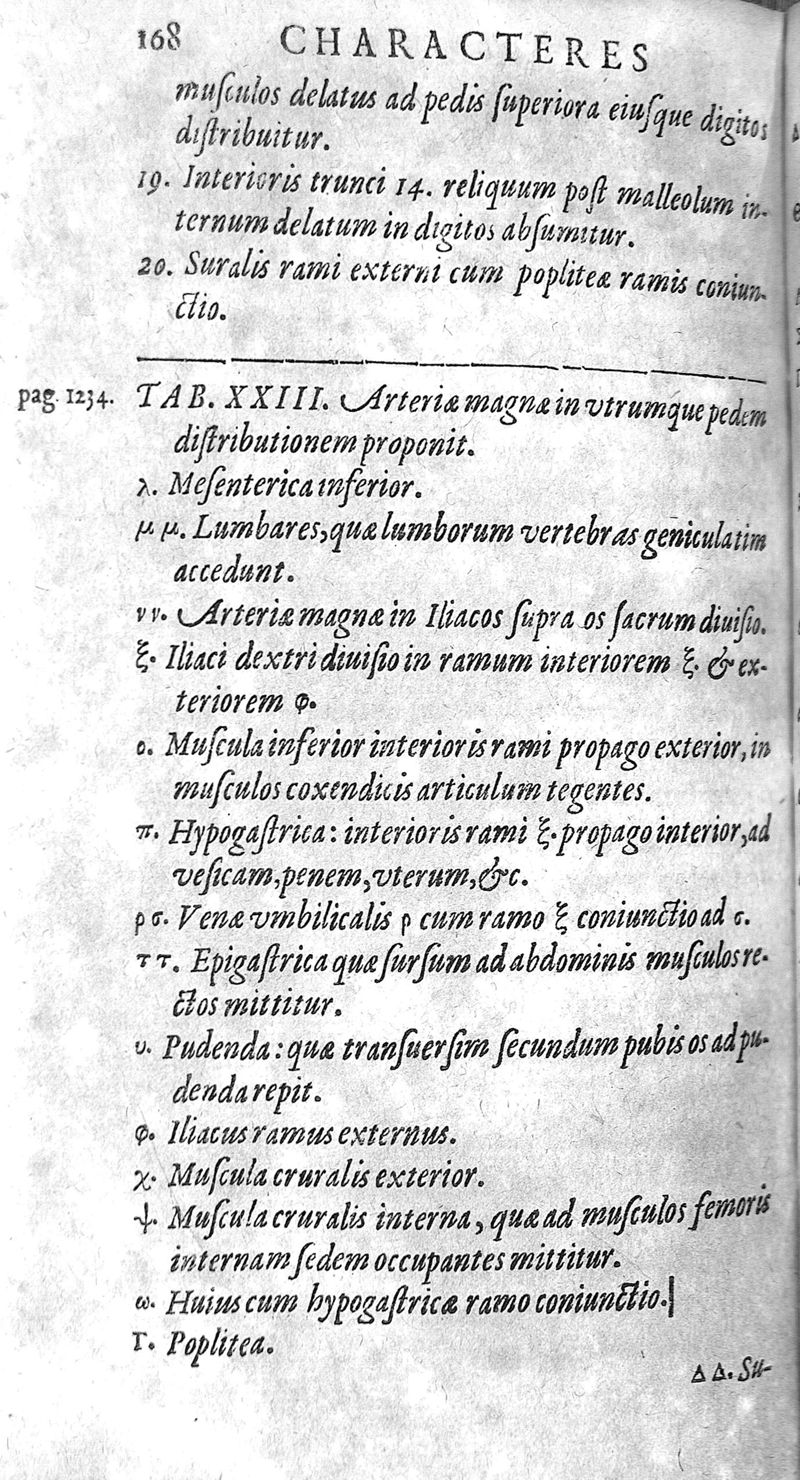 168 CHARACTERES
muſculos delatus ad pedis ſuperiora eiuſque digitos
diſtribuitur.
19. Interioris trunci 14. reliquum poſt malleolum in-
ternum delatum in digitos abſumitur.
20. Suralis rami externi cum popliteæ ramis coniun-
ctio.
pag. 1234. TAB. XXIII. Arteriæ magnæ in vtrumque pedem
diſtributionem proponit.
λ. Meſenterica inferior.
μ μ. Lumbares, quæ lumborum vertebras geniculatim
accedunt.
νν. Arteriæ magnæ in Iliacos ſupra os ſacrum diuiſio.
ξ. Iliaci dextri diuiſio in ramum interiorem ξ. & ex-
teriorem φ.
ο. Muſcula inferior interioris rami propago exterior, in
muſculos coxendicis articulum tegentes.
π. Hypogaſtrica: interioris rami ξ. propago interior, ad
veſicam, penem, vterum, &c.
ρ σ. Venæ vmbilicalis ρ cum ramo ξ coniunctio ad σ.
τ τ. Epigaſtrica quæ ſurſum ad abdominis muſculos re-
ctos mittitur.
υ. Pudenda: quæ tranſuerſim ſecundum pubis os ad pu-
denda repit.
φ. Iliacus ramus externus.
χ. Muſcula cruralis exterior.
ψ. Muſcula cruralis interna, quæ ad muſculos femoris
internam ſedem occupantes mittitur.
ω. Huius cum hypogaſtricæ ramo coniunctio.
Γ. Poplitea.
Δ Δ. Su-